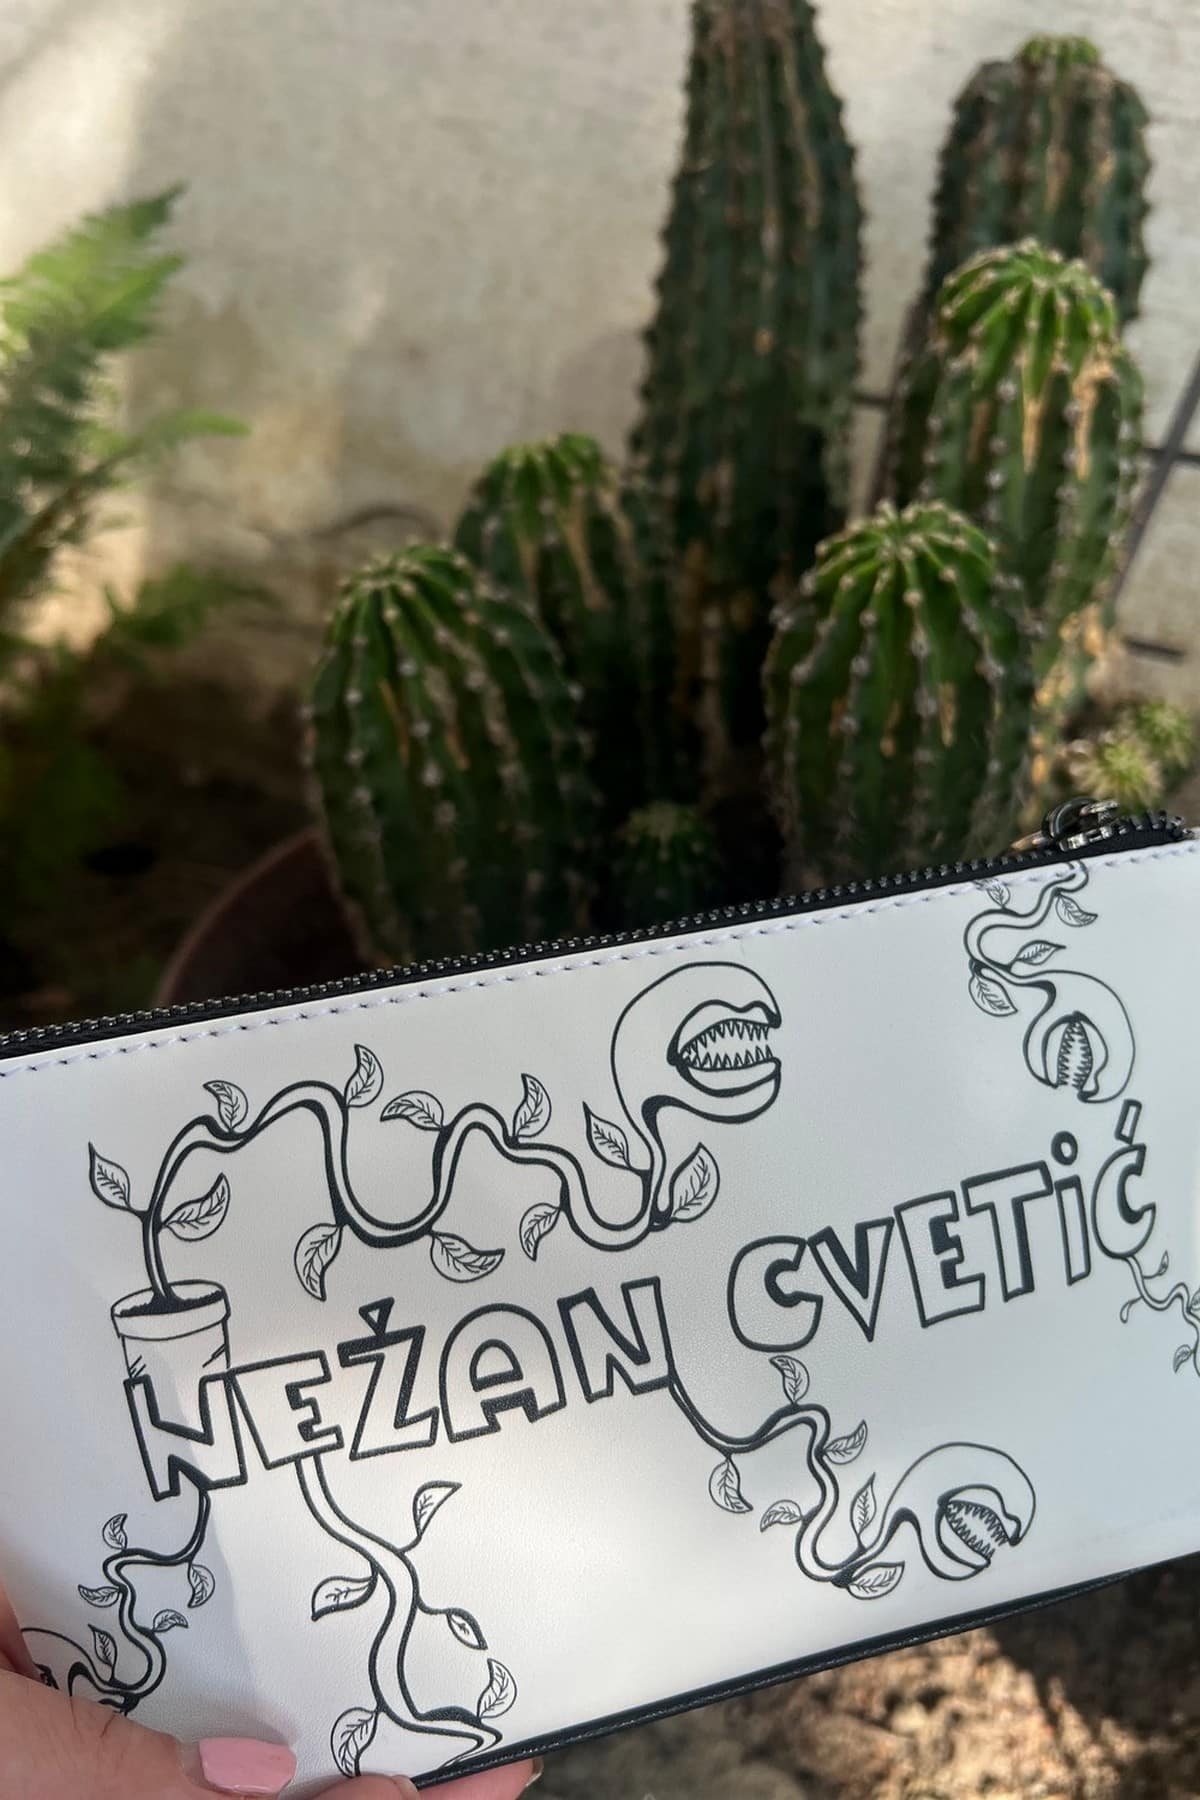 NEŽAN CVETiĆ